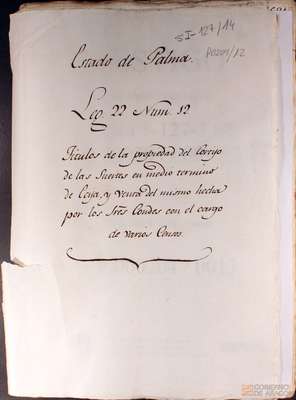 SI-127/14
P0201/12
Estado de Palma.
Leg 22 Num. 12
Titulos de la propiedad del Cortijo
de las Suertes en medio termino
de Ecija, y Venta del mismo hecha
por los Sres Condes con el cargo
de varios Censos.
GOBIERNO
DE ARAGON